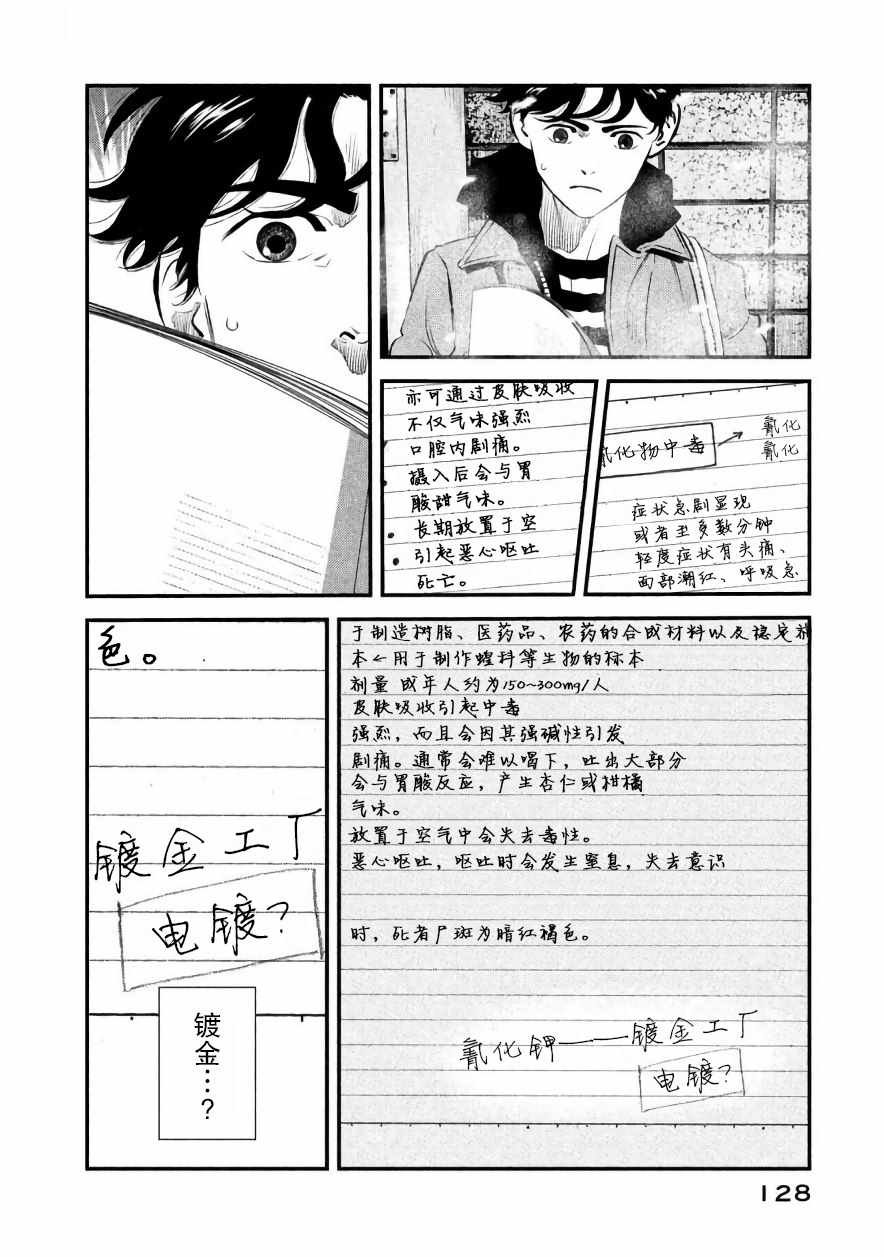 亦可通过皮肤吸收
不仅气味强烈
口腔内剧痛。
摄入后会与胃
酸甜气味。
长期放置于空
引起恶心呕吐
死亡。
氰化物中毒
氰化
氰化
症状急剧显现
或者至多数分钟
轻度症状有头痛、
面部潮红、呼吸急
于制造树脂、医药品、农药的合成材料以及稳定
本←用于制作蝗科等生物的标本
剂量 成年人约为150~300mg/人
皮肤吸收引起中毒
强烈，而且会因其强碱性引发
剧痛。通常会难以咽下，吐出大部分
会与胃酸反应，产生杏仁或柑橘
气味。
放置于空气中会失去毒性。
恶心呕吐，呕吐时会发生窒息，失去意识
时，死者尸斑为暗红褐色。
氰化钾——镀金工厂
电镀？
色。
镀金工厂
电镀？
镀金…？
128